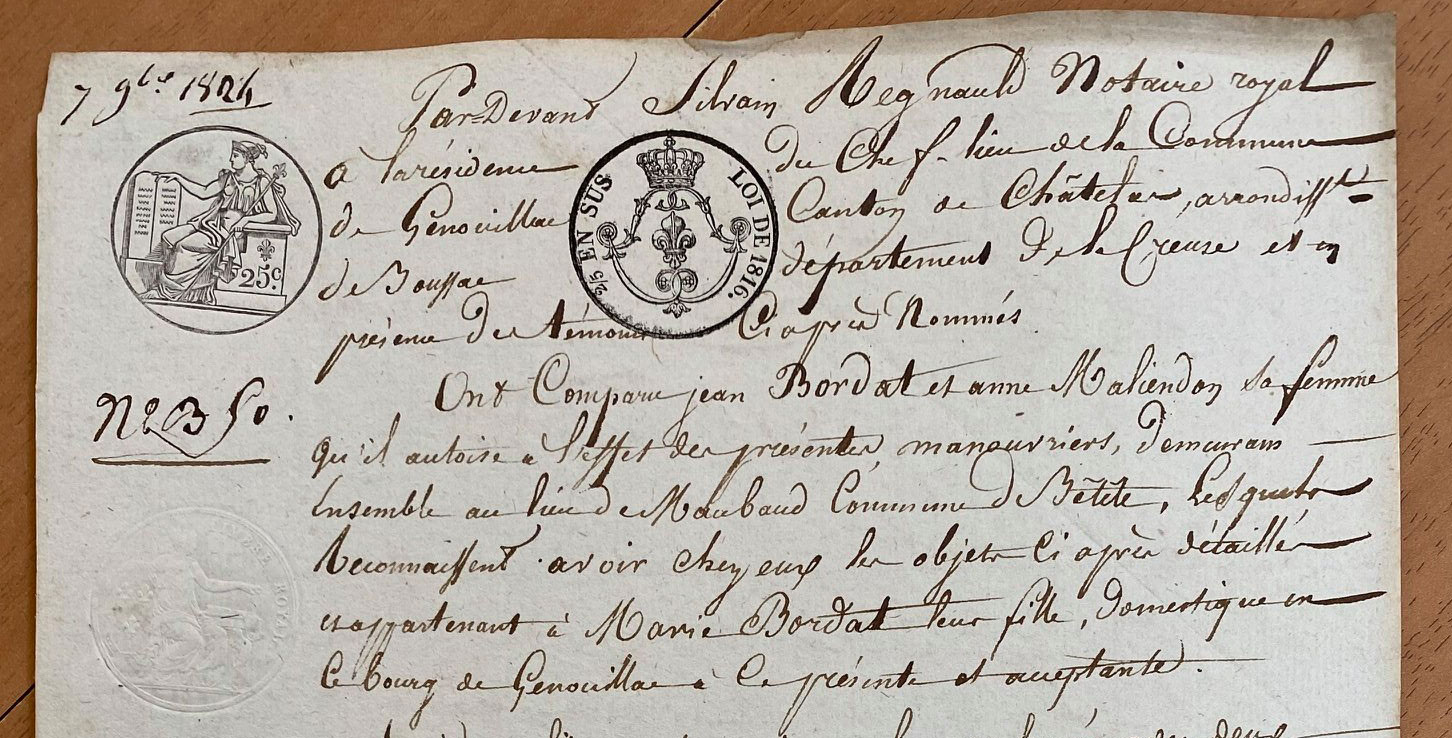 7 9bre 1824
Par=Devant Silvain Regnauld Notaire royal
à la résidence du Chef-lieu de la Commune
de Genouillac Canton de Châtelus, arrondisst
de Boussac département de la Creuse et en
présence des témoins Ci après Nommés
25c.
2/5 EN SUS LOI DE 1816.
No 350.
Ont Comparu jean Bordat et anne Maliendon sa femme
qu'il autoise à l'effet des présentes manouvriers, demeurans
Ensemble au lieu de Maubaud Commune d Bétête, Lesquels
Reconnaissent avoir chez eux les objets Ci après détaillés
et appartenant à Marie Bordat leur fille, domestique en
Ce bourg de Genouillac à Ce présente et acceptante.